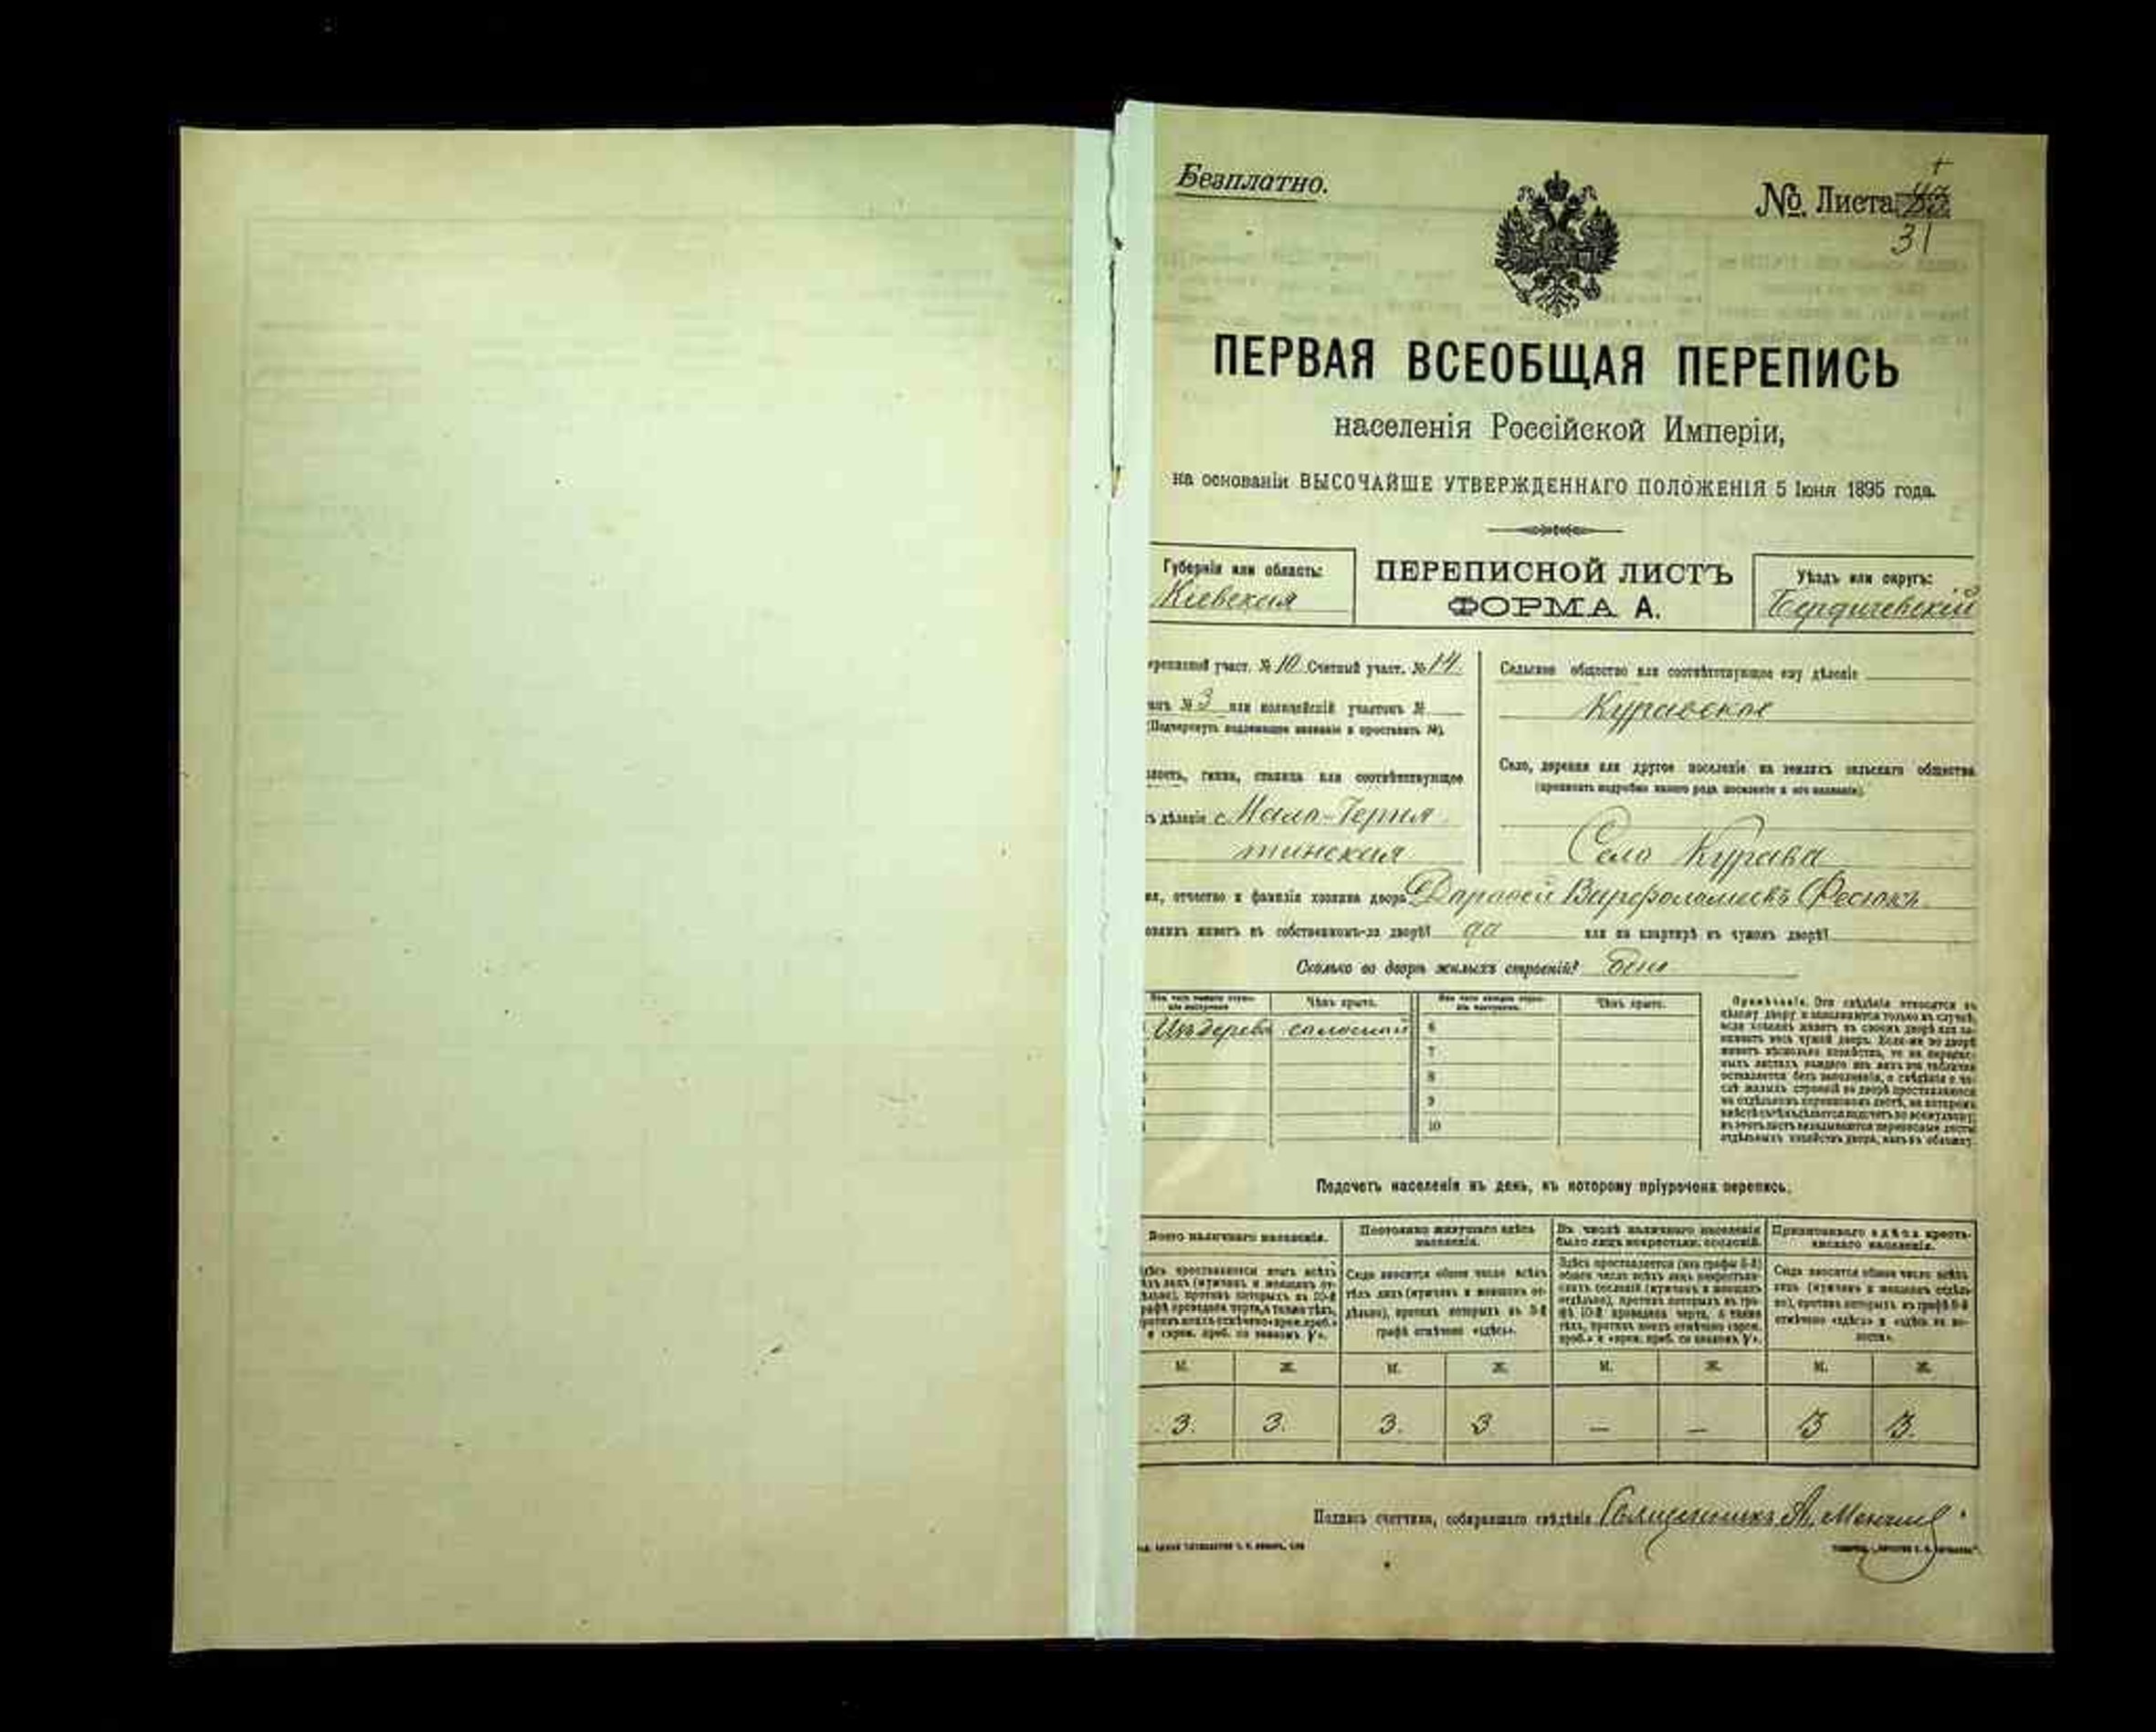 Безплатно.
№ Листа
31
ПЕРВАЯ ВСЕОБЩАЯ ПЕРЕПИСЬ
населенія Россійской Имперіи,
на основаніи ВЫСОЧАЙШЕ УТВЕРЖДЕННАГО ПОЛОЖЕНІЯ 5 Іюня 1895 года.
Губернія или область:
Кіевская
ПЕРЕПИСНОЙ ЛИСТЪ
ФОРМА А.
Уѣздъ или округъ:
Бердичевскій
ереписной участ. № 10 Счетный участ. № 14.
№ 3 или полицейскій участокъ №
(Подчеркнуть подлежащее названіе и проставить №).
лость, гмина, станица или соотвѣтствующее
дѣленіе с. Мало-Черня
тинская
Сельское общество или соотвѣтствующее ему дѣленіе
Куравское
Село, деревня или другое поселеніе на земляхъ сельскаго общества
(прописать подробно какого рода поселеніе и его названіе).
Село Курава
мя, отчество и фамилія хозяина двора Варфоломеевъ Фесюкъ
озяинъ живетъ въ собственномъ-ли дворѣ? да или на квартирѣ въ чужомъ дворѣ?
Сколько во дворѣ жилыхъ строеній?
Изъ чего каждое строе-
ніе построено
Чѣмъ крыто.
Изъ чего каждое строе-
ніе построено.
Чѣмъ крыто.
Изъ дерева соломой 6
7
8
9
10
Примѣчаніе. Эти свѣдѣнія относятся къ
цѣлому двору и заполняются только въ случаѣ,
если хозяинъ живетъ въ своемъ дворѣ или за-
нимаетъ весь чужой дворъ. Если-же во дворѣ
живетъ нѣсколько хозяйствъ, то на перепис-
ныхъ листахъ каждаго изъ нихъ эта табличка
оставляется безъ заполненія, а свѣдѣнія о чи-
слѣ жилыхъ строеній во дворѣ проставляются
на отдѣльномъ переписномъ листѣ, на которомъ
въ этотъ листъ вкладываются переписные листы
отдѣльныхъ хозяйствъ двора, какъ въ обложку.
Подсчетъ населенія въ день, къ которому пріурочена перепись.
Всего наличнаго населенія.
Постоянно живущаго здѣсь
населенія.
Въ числѣ наличнаго населенія
было лицъ некрестьян. сословій.
Приписаннаго здѣсь кресть-
янскаго населенія.
дѣсь проставляется итогъ всѣхъ
ѣхъ лицъ (мужчинъ и женщинъ от-
дѣльно), противъ которыхъ въ 10-й
рафѣ проведена черта, а также тѣхъ,
ротивъ коихъ отмѣчено «врем. преб.»
и «врем. преб. со знакомъ V».
Сюда вносится общее число всѣхъ
тѣхъ лицъ (мужчинъ и женщинъ от-
дѣльно), противъ которыхъ въ 9-й
графѣ отмѣчено «здѣсь».
Здѣсь проставляется (изъ графы 5-й)
общее число всѣхъ лицъ некрестьян-
скихъ сословій (мужчинъ и женщинъ
отдѣльно), противъ которыхъ въ гра-
фѣ 10-й проведена черта, а также
тѣхъ, противъ коихъ отмѣчено «врем.
преб.» и «врем. преб. со знакомъ V».
Сюда вносится общее число всѣхъ
лицъ (мужчинъ и женщинъ отдѣль-
но), противъ которыхъ въ графѣ 8-й
отмѣчено «здѣсь» и «здѣсь въ во-
лости».
М. Ж. М. Ж. М. Ж. М. Ж.
3. 3. 3. 3 — — 3 3.
Подпись счетчика, собиравшаго свѣдѣнія